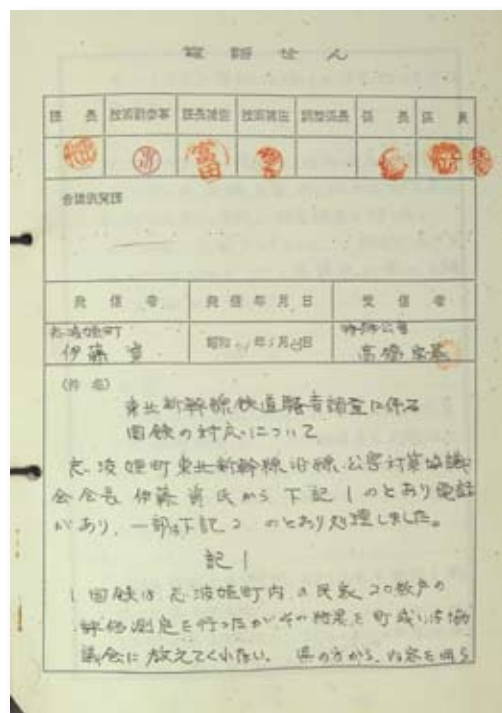 電話せん
課長 技術副参事 課長補佐 技術補佐 調整係長 係長 係員
富田
合議供覧団
発信者 発信年月日 受信者
志波姫町 特殊公害
伊藤 昭和 年5月 日 高橋
(件名)
東北新幹線鉄道騒音調査に係る
国鉄の対応について
志波姫町東北新幹線沿線公害対策協議
会会長 伊藤 氏から下記1のとおり電話
があり、一部下記2のとおり処理しました。
記1
1 国鉄は志波姫町内の民家20数戸の
評価測定を行ったがその結果を町或いは協
議会に教えてくれない。県の方から、内容を